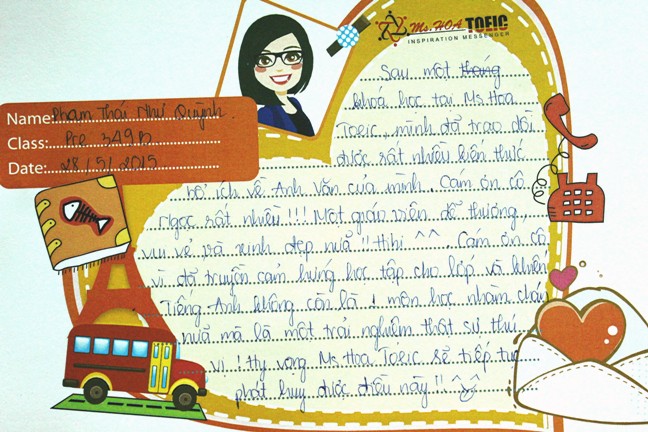 Ms. HOA TOEIC
INSPIRATION MESSENGER
Name: Phạm Thái Như Quỳnh.
Class: Pre 349D
Date: 28/5/2015
Sau một tháng
khoá học tại Ms.Hoa
Toeic, mình đã trao dồi
được rất nhiều kiến thức
bổ ích về Anh Văn của mình. Cám ơn cô
Ngọc rất nhiều!!! Một giáo viên dễ thương,
vui vẻ và xinh đẹp nữa!! Hihi ^^. Cám ơn cô
vì đã truyền cảm hứng học tập cho lớp và khiến
Tiếng Anh không còn là 1 môn học nhàm chán
nữa mà là một trải nghiệm thật sự thú
vị! Hy vọng Ms.Hoa Toeic sẽ tiếp tục
phát huy được điều này!!